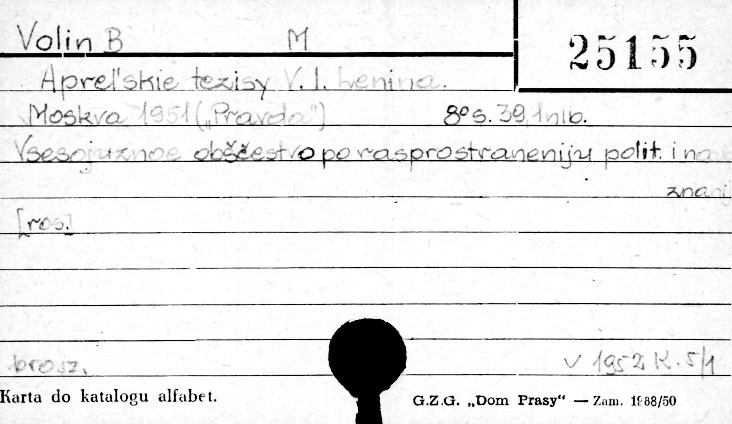 Volin B M
25155
Aprel'skie tezisy V. I. Lenina.
Moskva 1951 („Pravda") 8° s. 39, 1nlb.
Vsesojuznoe obščestvo po rasprostraneniju polit. i
[ros.]
brosz. V 1952 K. 5/1
Karta do katalogu alfabet. G.Z.G. „Dom Prasy" — Zam. 1868/50